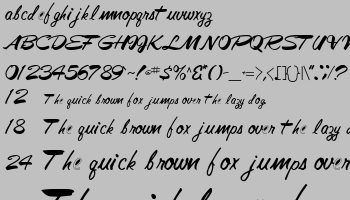 abcdefghijklmnopqrstuvwxyz
ABCDEFGHIJKLMNOPQRSTUV
0123456789~!@#$%^&*()-_+=>,<.[]{}|\":;/?
12 The quick brown fox jumps over the lazy dog
18 The quick brown fox jumps over the lazy
24 The quick brown fox jumps over